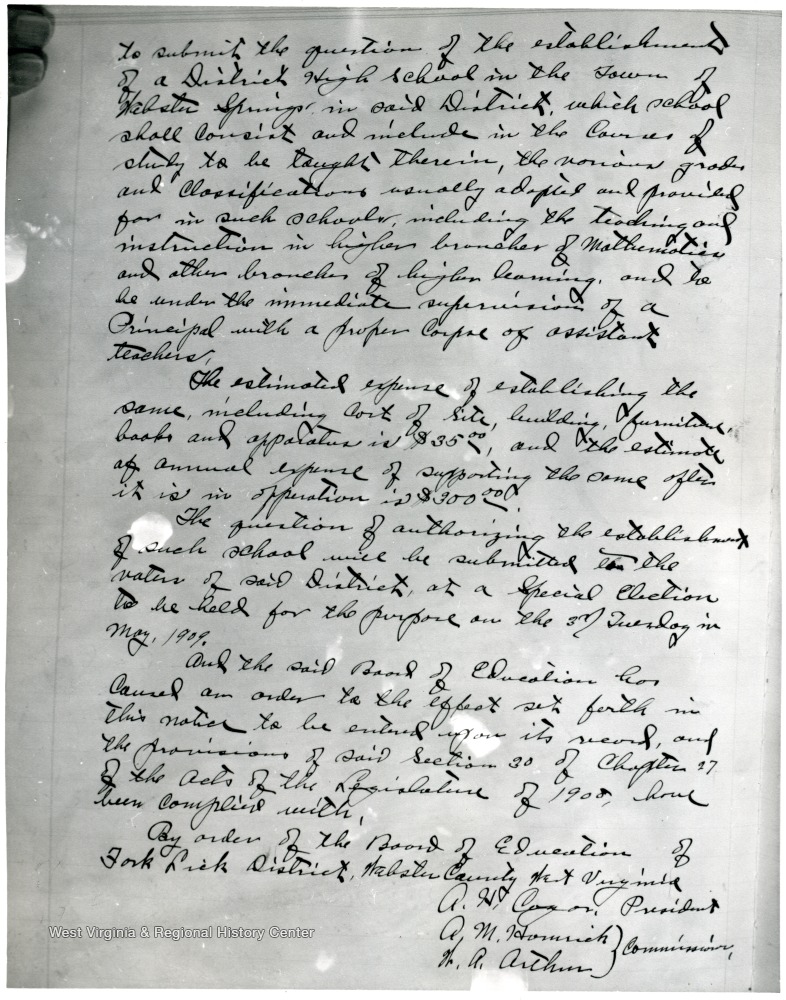 to submit the question of the establishment
of a District High School in the Town of
Webster Springs in said District, which school
shall consist and include in the Courses of
study to be taught therein, the various grades
and Classifications usually adopted and provided
for in such schools, including the teaching and
instruction in higher branches of Mathematics
and other branches of higher learning, and to
be under the immediate supervision of a
Principal with a proper Corpse of assistant
teachers.
The estimated expense of establishing the
same, including Cost of Site, building, furniture,
books and apparatus is $35 00, and the estimate
of annual expense of supporting the same after
it is in operation is $300 00.
The question of authorizing the establishment
of such school will be submitted to the
voters of said District, at a Special Election
to be held for the purpose on the 3rd Tuesday in
May, 1909.
And the said Board of Education has
Caused an order to the effect set forth in
this notice to be entered upon its record, and
the provisions of said Section 30 of Chapter 27
of the Acts of the Legislature of 1908, have
been Complied with,
By order of the Board of Education of
Fork Lick District, Webster County West Virginia
A. H. President
A. M. Hamrick
W. A. Arthur } Commissioners,
West Virginia & Regional History Center